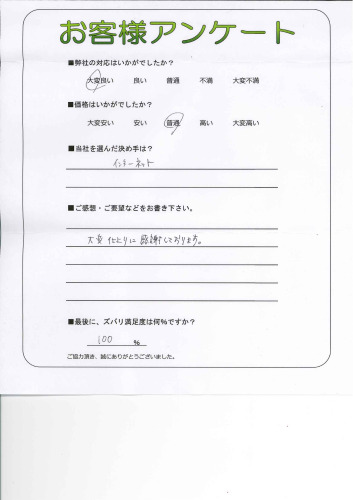 お客様アンケート
■弊社の対応はいかがでしたか？
大変良い 良い 普通 不満 大変不満
■価格はいかがでしたか？
大変安い 安い 普通 高い 大変高い
■当社を選んだ決め手は？
インターネット
■ご感想・ご要望などをお書き下さい。
大変 に感謝しております。
■最後に、ズバリ満足度は何％ですか？
100 ％
ご協力頂き、誠にありがとうございました。